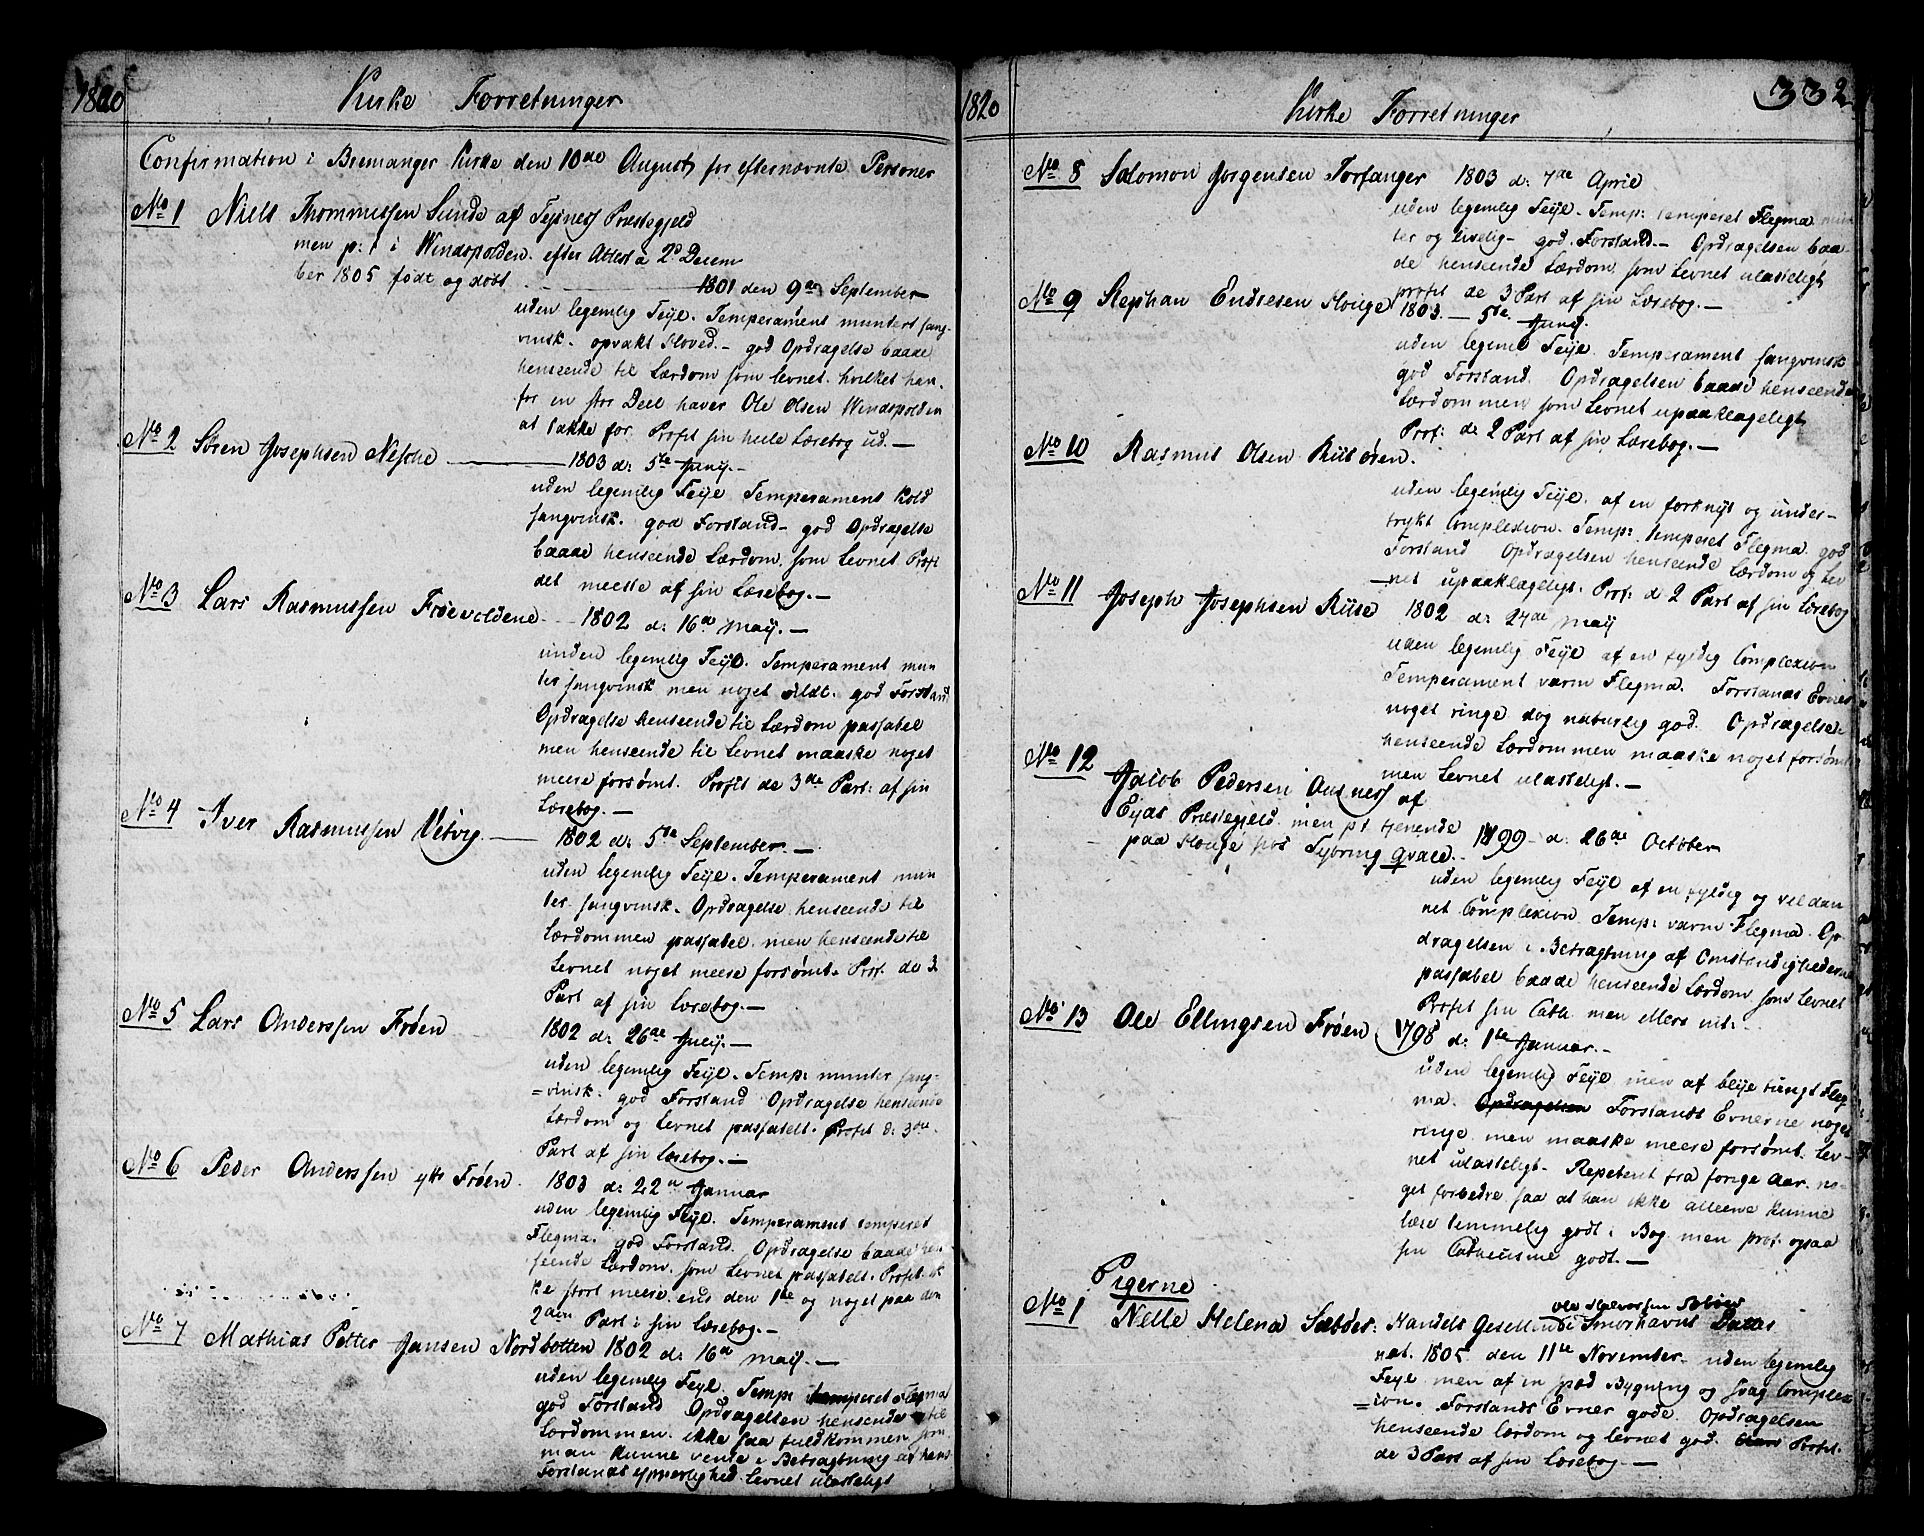 1820
Kirke Forretninger
Confirmation i Bremanger Kirke den 10de August for efternævnte Personer
No 1 Niels Thommessen Sunde af Tysnes Præstegjeld
men p: t i Windspolden efter Attest a 2d Decem
ber 1805 født og døbt
1801 den 9de September
uden legemlig Feyl. Temperament muntert sang-
vinsk. opvakt Hoved. - god Opdragelse baade
henseende til Lærdom som Levnet. hvilket han
for en stor Deel haver Ole Olsen Windspolden
at takke for. Profit sin heele Lærebog ud. -
No 2 Søren Josephsen Nesche
1803 d: 5te Juny. -
uden legemlig Feyl Temperament Kold
sangvinsk. god Forstand - god Opdragelse
baade henseende Lærdom, som Levnet Profit
det meeste af sin Lærebog. -
No 3 Lars Rasmussen Frøevoldene
1802 d: 16de Maij. -
uuden legemlig Feyl. Temperament mun
ter sangvinsk men noget stildt. god Forstand
Opdragelse henseende til Lærdom passabel
men henseende til Levnet maaske noget
meere forsømt. Profit de 3de Part: af sin
Lærebog. -
No 4 Iver Rasmussen Vetvig. -
1802 d: 5te September. -
uden legemlig Feyl. Temperament mun
ter sangvinsk. Opdragelse henseende til
Lærdommen passabel. men henseende til
Levnet noget meere forsømt. Prof. de 3
Part af sin Lærebog. -
No 5 Lars Anderssen Frøen
1802 d: 26de July. -
uden legemlig Feyl. Temp: munter sang-
=vinsk. god Forstand Opdragelse henseende
Lærdom og Levnet passabelt. Profit d: 3de
Part af sin Lærebog. -
No 6 Peder Anderssen Frøen.
1803 d: 22de Januar
uden legemlig Feyl. Temperament temperet
Flegma. god Forstand. Opdragelse baade hen-
seende Lærdom, som Levnet passabelt. Profit ik
ke stort meere end den 1te og noget paa den
2den Part i sin Lærebog. -
No 7 Mathias Petter Jansen Nordbotten 1802 d: 16de Maij. -
uden legemlig Feyl. Temp: temperet Flegma
god Forstand Opdragelsen henseende til
Lærdommen. ikke saa fuldkommen som
man kunne vente i Betragtning af hans
Forstands ypperlighed Levnet ulasteligt
1820
Kirke Forretninger
332
No 8 Salomon Jørgensen Torfanger 1803 d: 7de April
uden legemlig Feyl. Temp: temperet Flegma mun
ter og livelig - god Forstand. - Opdragelsen baa-
de henseende Lærdom, som Levnet ulasteligt
profit de 3 Part af sin Lærebog. -
No 9 Stephan Endresen Houge
1803. - 5te Juny.
uden legeml Feyl. Temperament sangvinsk
god Forstand. Opdragelsen baade henseende
Lærdommen som Levnet upaaklageligt
Prof: de 2 Part af sin Lærebog. -
No 10 Rasmus Olsen Riisøren.
uden legemlig Feyl. af en forknyt og under-
trykt Complexion. Temp: temperet Flegma. god
Forstand Opdragelsen henseende Lærdom og Lev
-net upaaklageligt. Prof. d 2 Part af sin Lærebog
No 11 Joseph Josephsen Riise 1802 d: 24de Maij
uden legemlig Feyl af en fyldig Complexion
Temperament varm Flegma. Forstands Evner
noget ringe dog naturlig god. Opdragelse
henseende Lærdommen maaske noget forsømt
men Levnet ulasteligt. -
No 12
Jacob Pedersen af
Eyds Præstegjeld. men pt tjenende
paa Houge hos Tybring qvace.
1799 - d: 26de October
uden legemlig Feyl af en fyldig og veldan
net Complexion Temp: varm Flegma. Op-
dragelsen i Betragtning af Omstændighederne
passabel baade henseende Lærdom som Levnet
Profit sin Cath: men ellers
No 13 Ole Ellingsen Frøen 1798 d: 1te Januar. -
uden legemlig Feyl men af blye tungt Fleg
ma. Opdragelsen Forstands Evnerne noget
ringe men maaske meere forsømt. Lev-
net ulasteligt. Repetent fra forige Aar. no-
get forbedre saa at han ikke alleene kunne
læse temmelig godt i Bog. men prof. ogsaa
sin Catheuisme godt. -
Pigerne
No 1 Nelle Helena Sæbøes: Handels Gesellen Ole Halvorssen Sebøes i Smørhavns Datter
nat. 1805 den 11te November. uden legemlig
Feyl men af en spæd Bygning og svag Complex
=ion. Forstands Evner gode. Opdragelsen
henseende Lærdom og Levnet god. Profit.
de 3 Part af sin Lærebog. -